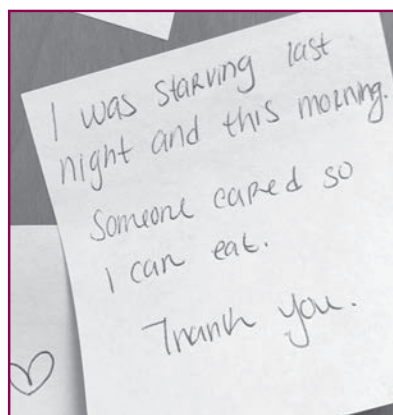 I was starving last
night and this morning.
Someone cared so
I can eat.
Thank you.